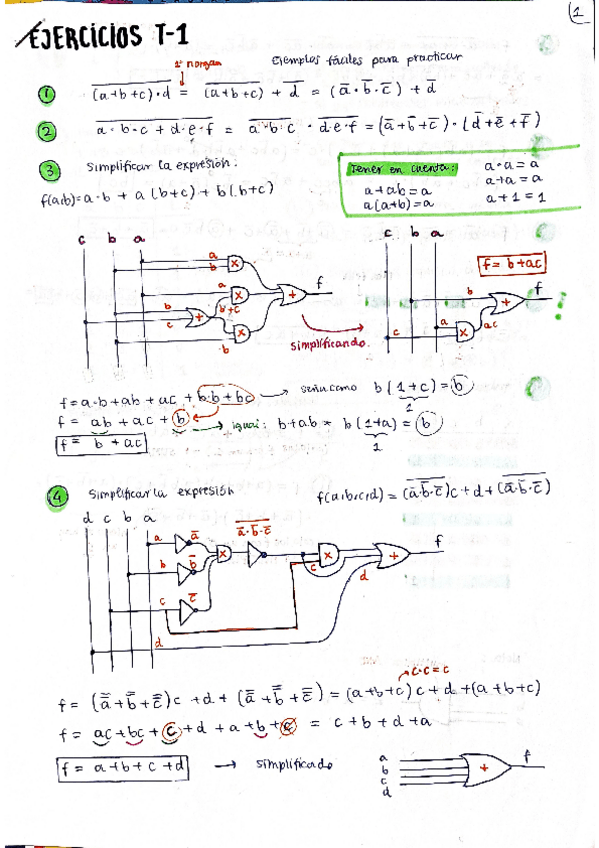 1
EJERCICIOS T-1
Ejemplos fáciles para practicar
1º morgan
① \overline{(a+b+c)·d} = \overline{(a+b+c)} + \overline{d} = (\overline{a}·\overline{b}·\overline{c}) + \overline{d}
② \overline{a·b·c + d·e·f} = \overline{a·b·c} · \overline{d·e·f} = (\overline{a}+\overline{b}+\overline{c})·(\overline{d}+\overline{e}+\overline{f})
③ Simplificar la expresión:
f(a,b)=a·b + a(b+c) + b(b+c)
Tener en cuenta:
a·a=a
a+ab=a
a+a=a
a(a+b)=a
a+1=1
c b a
a
b
x
a
x
b
c
+
b+c
b
x
+
f
simplificando.
c b a
f= b+ac
b
a
c
x
ac
+
f
f=a·b+ab+ac+b·b+bc → sería como b(1+c)=b
1
f= ab+ac+b → igual: b+ab = b(1+a)=b
1
f= b+ac
④ Simplificar la expresión
f(a,b,c,d)=\overline{(\overline{a}·\overline{b}·\overline{c})}c+d+\overline{(\overline{a}·\overline{b}·\overline{c})}
d c b a
a
\overline{a}
b
\overline{b}
c
\overline{c}
x
\overline{\overline{a}·\overline{b}·\overline{c}}
x
c
d
d
+
f
c·c=c
f= (\overline{\overline{a}}+\overline{\overline{b}}+\overline{\overline{c}})c+d+(\overline{\overline{a}}+\overline{\overline{b}}+\overline{\overline{c}})=(a+b+c)c+d+(a+b+c)
f= ac+bc+c+d+a+b+c = c+b+d+a
f= a+b+c+d → simplificado
a
b
c
d
+
f